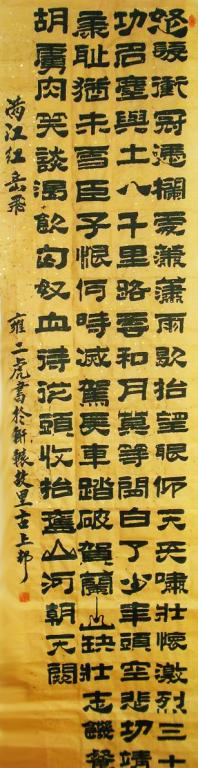 怒髮衝冠憑欄處瀟瀟雨歇抬望眼仰天長嘯壯懷激烈三十
功名塵與土八千里路雲和月莫等閒白了少年頭空悲切靖
康恥猶未雪臣子恨何時滅駕長車踏破賀蘭山缺壯志饑餐
胡虜肉笑談渴飲匈奴血待從頭收拾舊山河朝天闕
滿江红岳飛 雍二虎書於軒轅故里古上邽